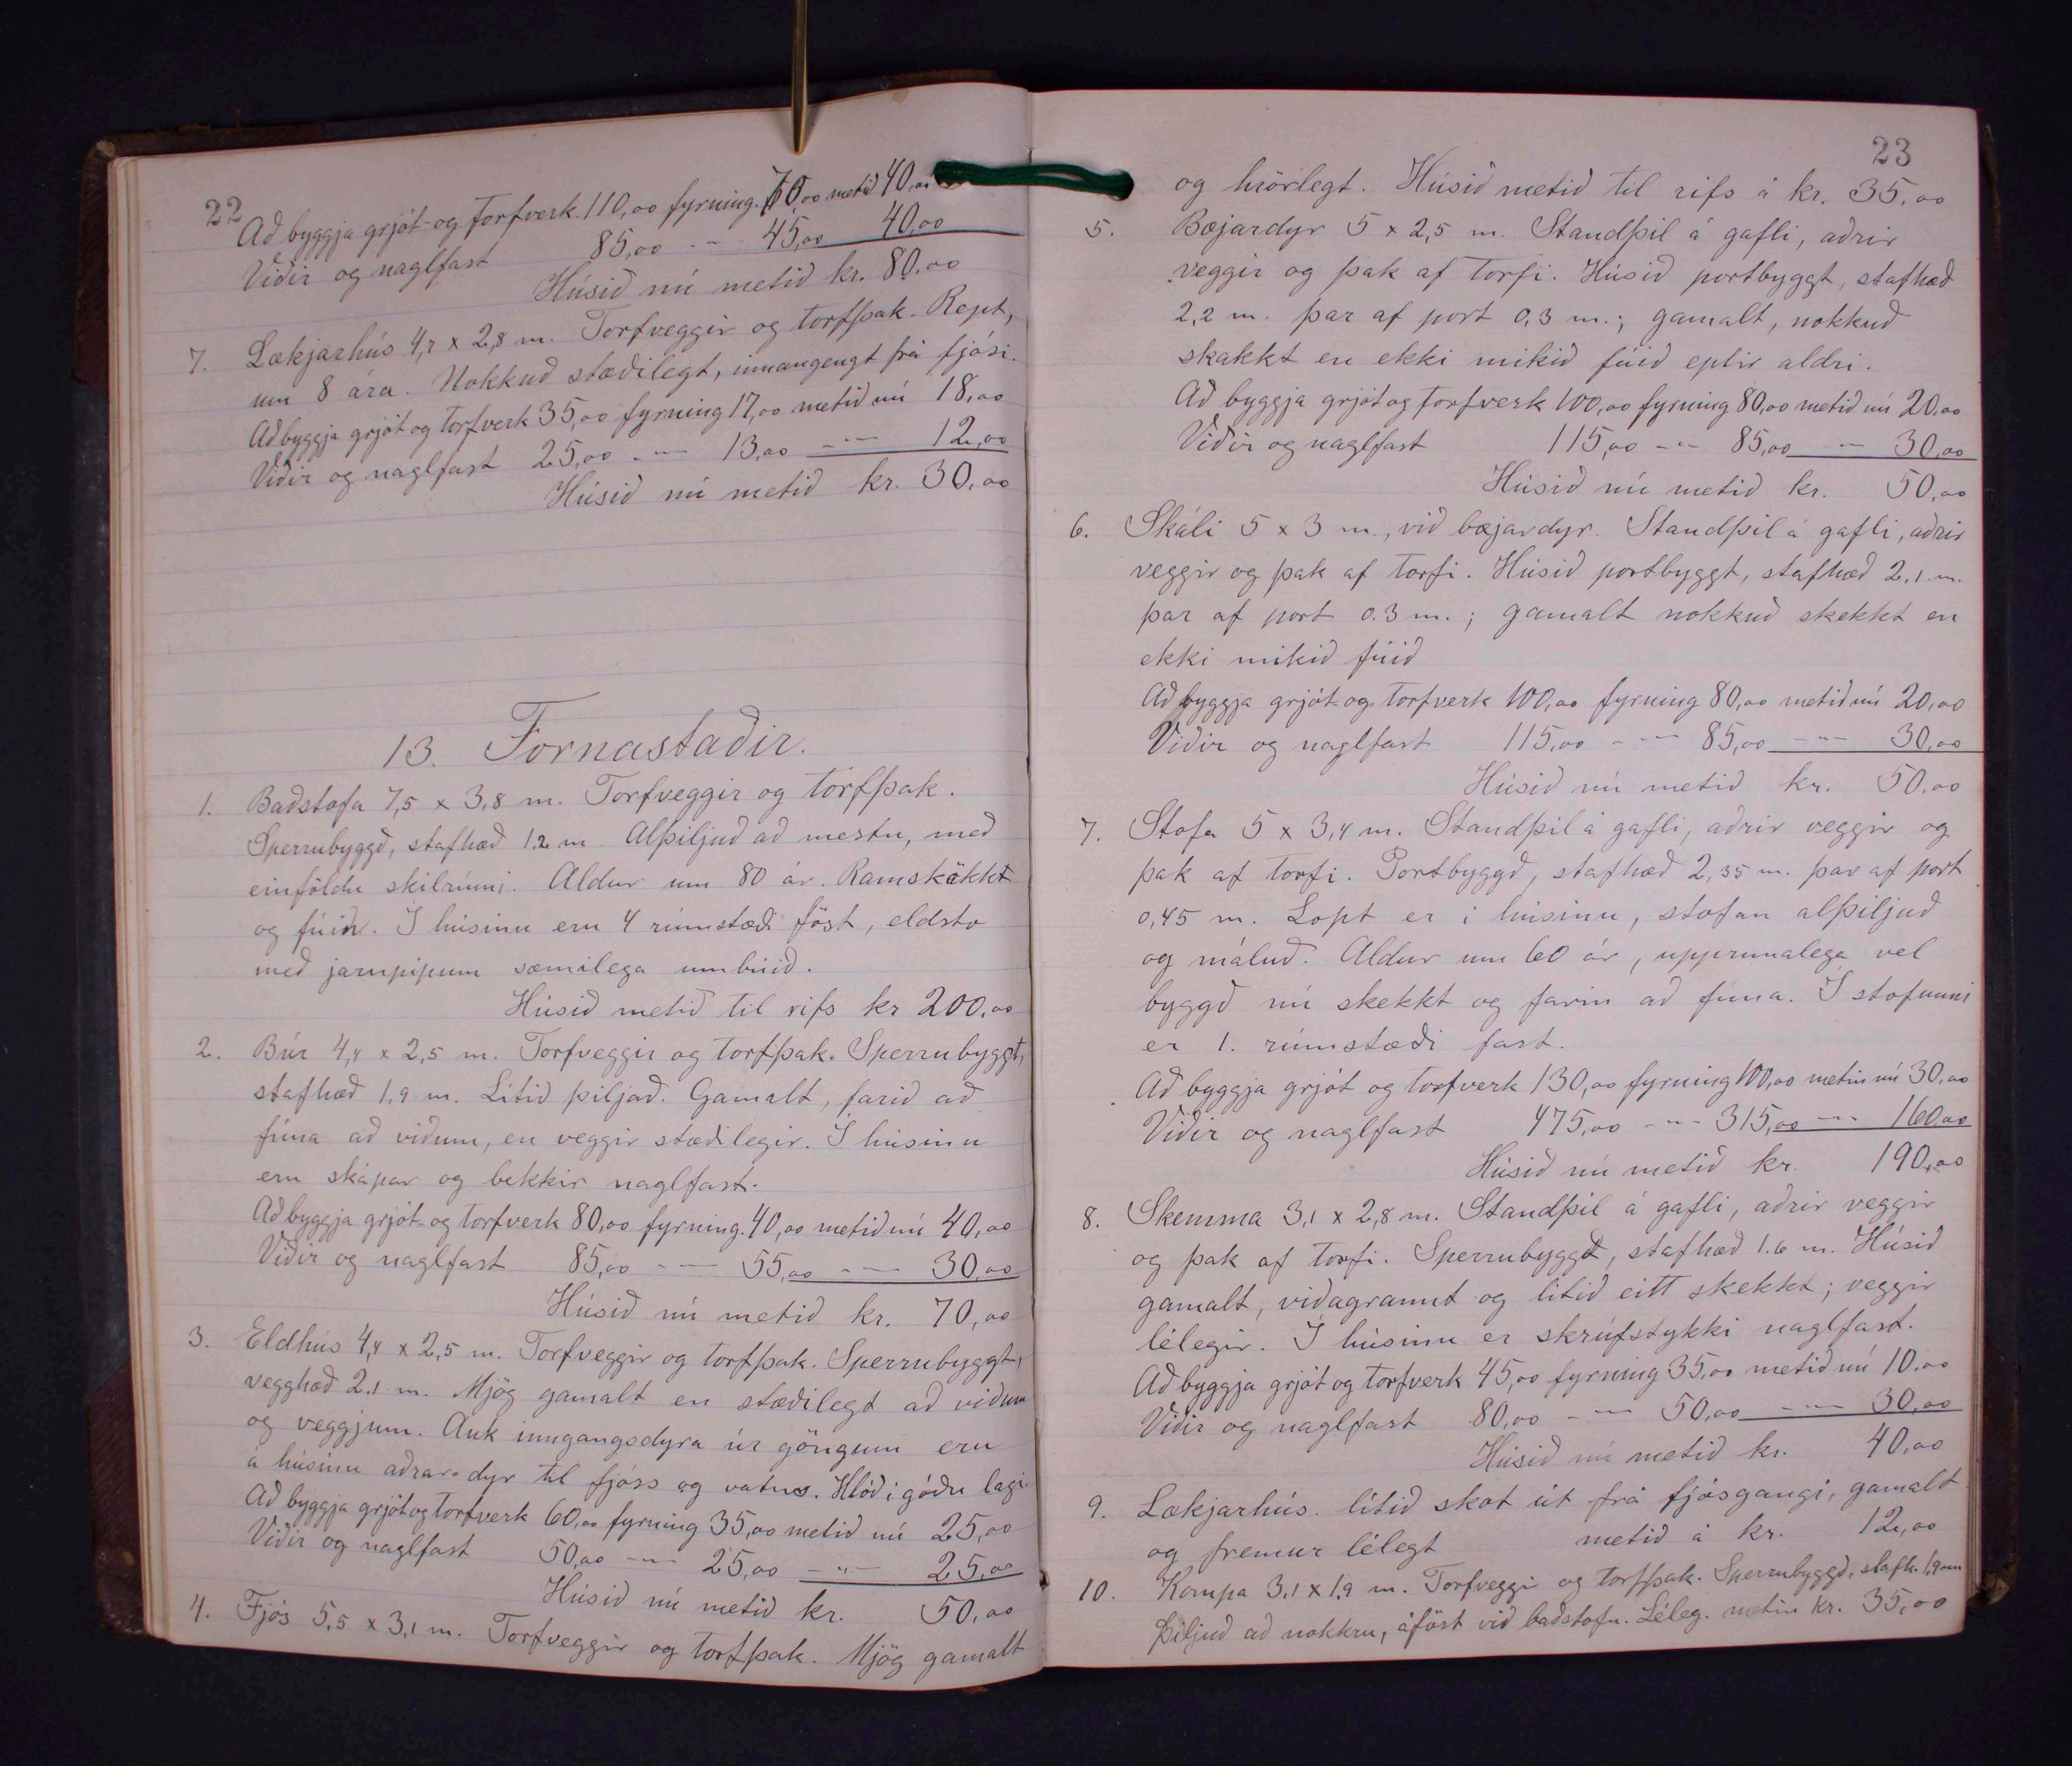 22
Að byggja grjót- og torfverk 110,00 fyrning 70,00 metið 40,00
Viðir og naglfast 85,00 -"- 45,00 40,00
Húsið nú metið kr. 80.00
7. Lækjarhús 4,7 x 2,8 m. Torfveggir og torfþak. Rept,
um 8 ára. Nokkuð stæðilegt, innangengt frá fjósi.
Að byggja grjót og torfverk 35,00 fyrning 17,00 metið nú 18,00
Viðir og naglfast 25,00 -"- 13,00 -"- 12,00
Húsið nú metið kr. 30,00
13. Fornastaðir.
1. Baðstofa 7,5 x 3,8 m. Torfveggir og torfþak.
Sperrubyggð, stafhæð 1.2 m. Alþiljuð að mestu, með
einföldu skilrúmi. Aldur um 80 ár. Ramskökk
og fúin. I húsinu eru 4 rúmstæði föst, eldsto
með jarnpipum sæmilega umbúið.
Húsið metið til rifs kr 200.00
2. Búr 4,4 x 2,5 m. Torfveggir og torfþak. Sperrubyggt,
stafhæð 1,9 m. Litið þiljað. Gamalt, farið að
fúna að viðum, en veggir stæðilegir. I húsinu
eru skápar og bekkir naglfast.
Að byggja grjót- og torfverk 80,00 fyrning 40,00 metið nú 40,00
Viðir og naglfast 85,00 -"- 55,00 -"- 30,00
Húsið nú metið kr. 70,00
3. Eldhús 4,4 x 2,5 m. Torfveggir og torfþak. Sperrubyggt,
vegghæð 2.1 m. Mjög gamalt en stæðilegt að viðum
og veggjum. Auk inngangsdyra úr göngum eru
á húsinu aðrar dyr til fjóss og vatns. Hlóð i góðu lagi
Að byggja grjót og torfverk 60,00 fyrning 35,00 metið nú 25,00
Viðir og naglfast 50,00 -"- 25,00 -"- 25,00
Húsið nú metið kr. 50,00
4. Fjós 5,5 x 3,1 m. Torfveggir og torfþak. Mjög gamalt
23
og hrörlegt. Húsið metið til rifs á kr. 35,00
5. Bæjardyr 5 x 2,5 m. Standþil á gafli, aðrir
veggir og þak af torfi. Húsið portbyggt, stafhæð
2,2 m. þar af port 0,3 m.; gamalt, nokkuð
skakkt en ekki mikið fúið eptir aldri.
Að byggja grjót og torfverk 100,00 fyrning 80,00 metið nú 20,00
Viðir og naglfast 115,00 -"- 85,00 -"- 30,00
Húsið nú metið kr. 50,00
6. Skáli 5 x 3 m., við bæjardyr. Standþil á gafli, aðrir
veggir og þak af torfi. Húsið portbyggt, stafhæð 2,1 m.
þar af port 0.3 m.; gamalt nokkuð skekkt en
ekki mikið fúið
Að byggja grjót- og torfverk 100,00 fyrning 80,00 metið nú 20,00
Viðir og naglfast 115,00 -"- 85,00 -"- 30,00
Húsið nú metið kr. 50.00
7. Stofa 5 x 3,4 m. Standþil á gafli, aðrir veggir og
þak af torfi. Portbyggð, stafhæð 2,35 m. þar af port
0,45 m. Lopt er i húsinu, stofan alþiljuð
og máluð. Aldur um 60 ár, upprunalega vel
byggð nú skekkt og farin að fúna. I stofunni
er 1. rúmstæði fast.
Að byggja grjót og torfverk 130,00 fyrning 100,00 metin nú 30,00
Viðir og naglfast 475,00 -"- 315,00 -"- 160,00
Húsið nú metið kr. 190,00
8. Skemma 3,1 x 2,8 m. Standþil á gafli, aðrir veggir
og þak af torfi. Sperrubyggð, stafhæð 1.6 m. Húsið
gamalt, viðagrannt og litið eitt skekkt; veggir
lélegir. I húsinu er skrúfstykki naglfast.
Að byggja grjót og torfverk 45,00 fyrning 35,00 metið nú 10.00
Viðir og naglfast 80,00 -"- 50,00 -"- 30,00
Húsið nú metið kr. 40,00
9. Lækjarhús. litið skot út frá fjósgangi, gamalt
og fremur lélegt metið á kr. 12,00
10. Kompa 3,1 x 1,9 m. Torfveggi og torfþak. Sperrubyggð, stafh. 1,9 m
Þiljuð að nokkru, áföst við baðstofu. Léleg. metin kr. 35,00